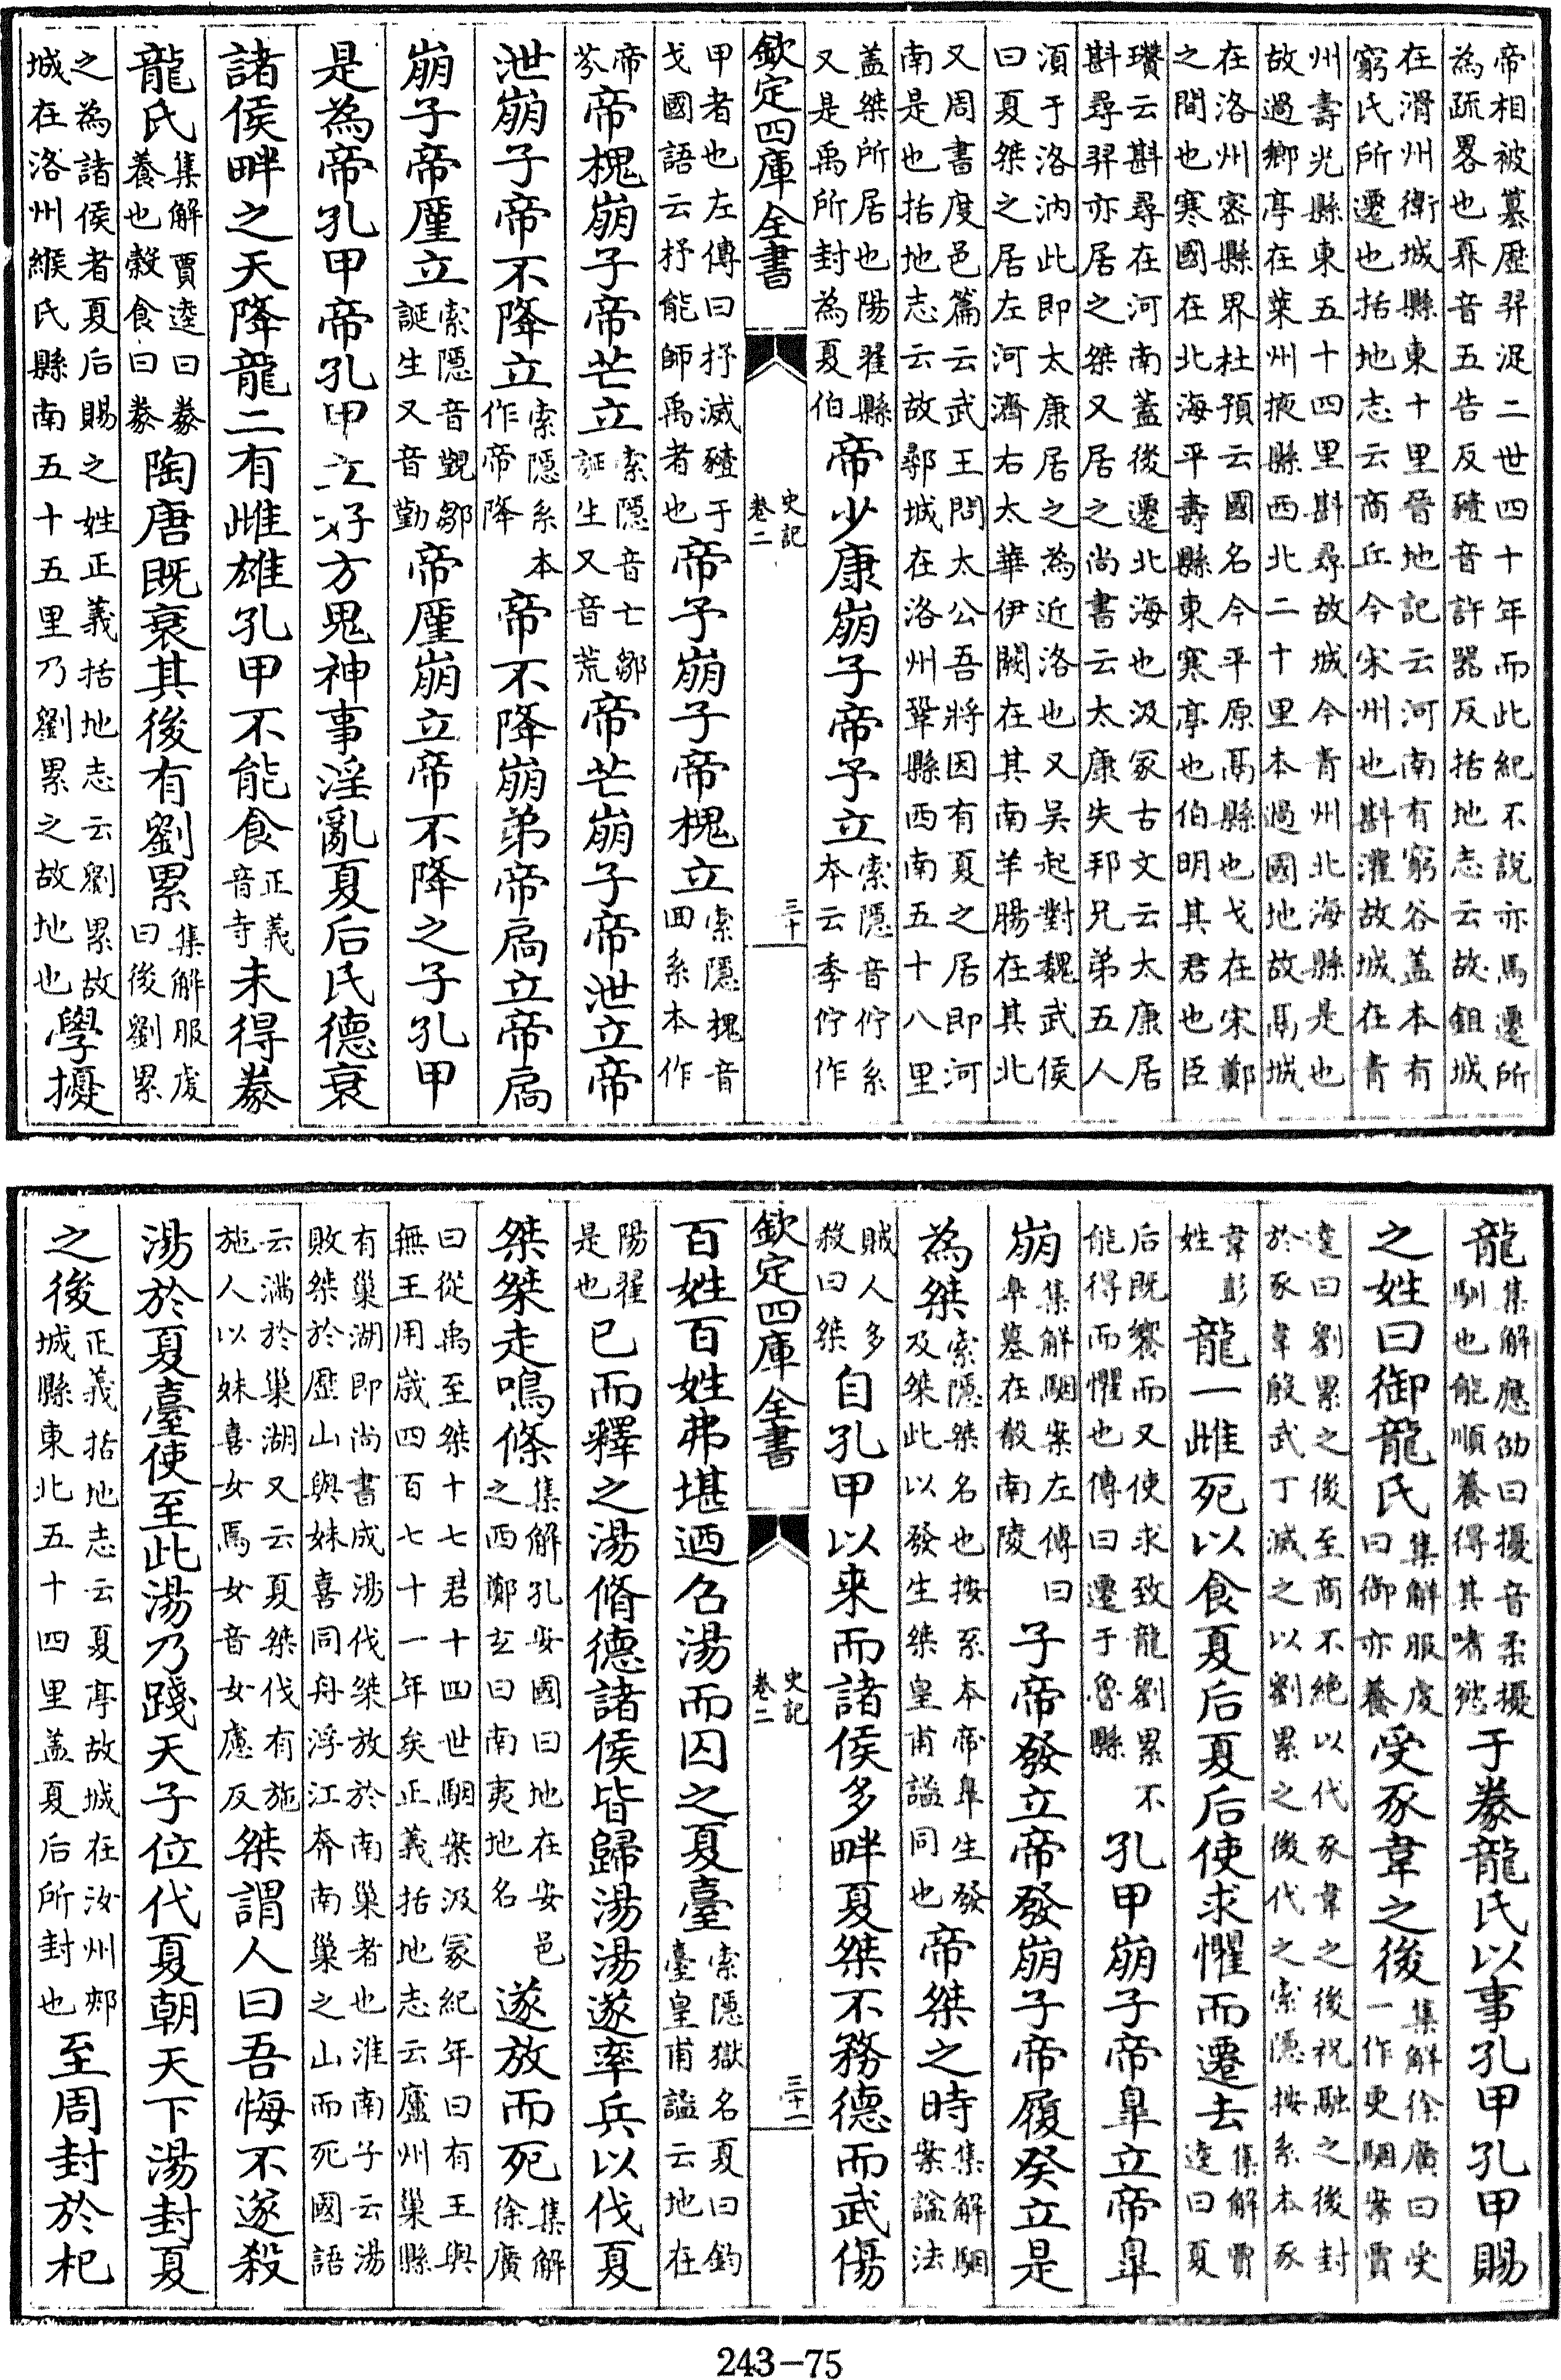 帝相被簒歷羿浞二世四十年而此紀不說亦馬遷所
為疏畧也奡音五告反豷音許器反括地志云故鉏城
在滑州衛城縣東十里晉地記云河南有窮谷盖本有
窮氏所遷也括地志云商丘今宋州也斟灌故城在青
州壽光縣東五十四里斟尋故城今青州北海縣是也
故過鄉亭在萊州掖縣西北二十里本過國地故鬲城
在洛州密縣界杜預云國名今平原鬲縣也戈在宋鄭
之間也寒國在北海平壽縣東寒亭也伯明其君也臣
瓉云斟尋在河南蓋後遷北海也汲冢古文云太康居
斟尋羿亦居之桀又居之尚書云太康失邦兄弟五人
湏于洛汭此即太康居之為近洛也又吴起對魏武侯
曰夏桀之居左河濟右太華伊闕在其南羊腸在其北
又周書度邑篇云武王問太公吾將因有夏之居即河
南是也括地志云故鄩城在洛州鞏縣西南五十八里
盖桀所居也陽翟縣
又是禹所封為夏伯
帝少康崩子帝予立
索隱音佇系
本云季佇作
欽定四庫全書
史記
卷二
三十
甲者也左傳曰杼滅豷于
戈國語云杼能師禹者也
帝予崩子帝槐立
索隱槐音
回系本作
帝
芬
帝槐崩子帝芒立
索隱音亡鄒
誕生又音荒
帝芒崩子帝泄立帝
泄崩子帝不降立
索隱系本
作帝降
帝不降崩弟帝扃立帝扃
崩子帝廑立
索隱音覲鄒
誕生又音勤
帝廑崩立帝不降之子孔甲
是為帝孔甲帝孔甲立好方鬼神事淫亂夏后氏德衰
諸侯畔之天降龍二有雌雄孔甲不能食
正義
音寺
未得豢
龍氏
集解賈逵曰豢
養也榖食曰豢
陶唐既衰其後有劉累
集解服虔
曰後劉累
之為諸侯者夏后賜之姓正義括地志云劉累故
城在洛州緱氏縣南五十五里乃劉累之故地也
學擾
龍
集解應劭曰擾音柔擾
馴也能順養得其嗜慾
于豢龍氏以事孔甲孔甲賜
之姓曰御龍氏
集解服虔
曰御亦養
受豕韋之後
集解徐廣曰受
一作更駰案賈
逵曰劉累之後至商不絶以代豕韋之後祝融之後封
於豕韋殷武丁滅之以劉累之後代之索隱按系本豕
韋彭
姓
龍一雌死以食夏后夏后使求懼而遷去
集解賈
逵曰夏
后既饗而又使求致龍劉累不
能得而懼也傳曰遷于魯縣
孔甲崩子帝皐立帝皐
崩
集解駰案左傳曰
皐墓在殽南陵
子帝發立帝發崩子帝履癸立是
為桀
索隱桀名也按系本帝皐生發
及桀此以發生桀皇甫謐同也
帝桀之時
集解駰
案諡法
賊人多
殺曰桀
自孔甲以来而諸侯多畔夏桀不務德而武傷
欽定四庫全書
史記
卷二
三十一
百姓百姓弗堪迺召湯而囚之夏臺
索隱獄名夏曰鈞
臺皇甫謐云地在
陽翟
是也
已而釋之湯脩德諸侯皆歸湯湯遂率兵以伐夏
桀桀走鳴條
集解孔安國曰地在安邑
之西鄭玄曰南夷地名
遂放而死
集解
徐廣
曰從禹至桀十七君十四世駰案汲冢紀年曰有王與
無王用歲四百七十一年矣正義括地志云廬州巢縣
有巢湖即尚書成湯伐桀放於南巢者也淮南子云湯
敗桀於歷山與妺喜同舟浮江奔南巢之山而死國語
云滿於巢湖又云夏桀伐有施
施人以妺喜女焉女音女慮反
桀謂人曰吾悔不遂殺
湯於夏臺使至此湯乃踐天子位代夏朝天下湯封夏
之後
正義括地志云夏亭故城在汝州郟
城縣東北五十四里盖夏后所封也
至周封於杞
243-75